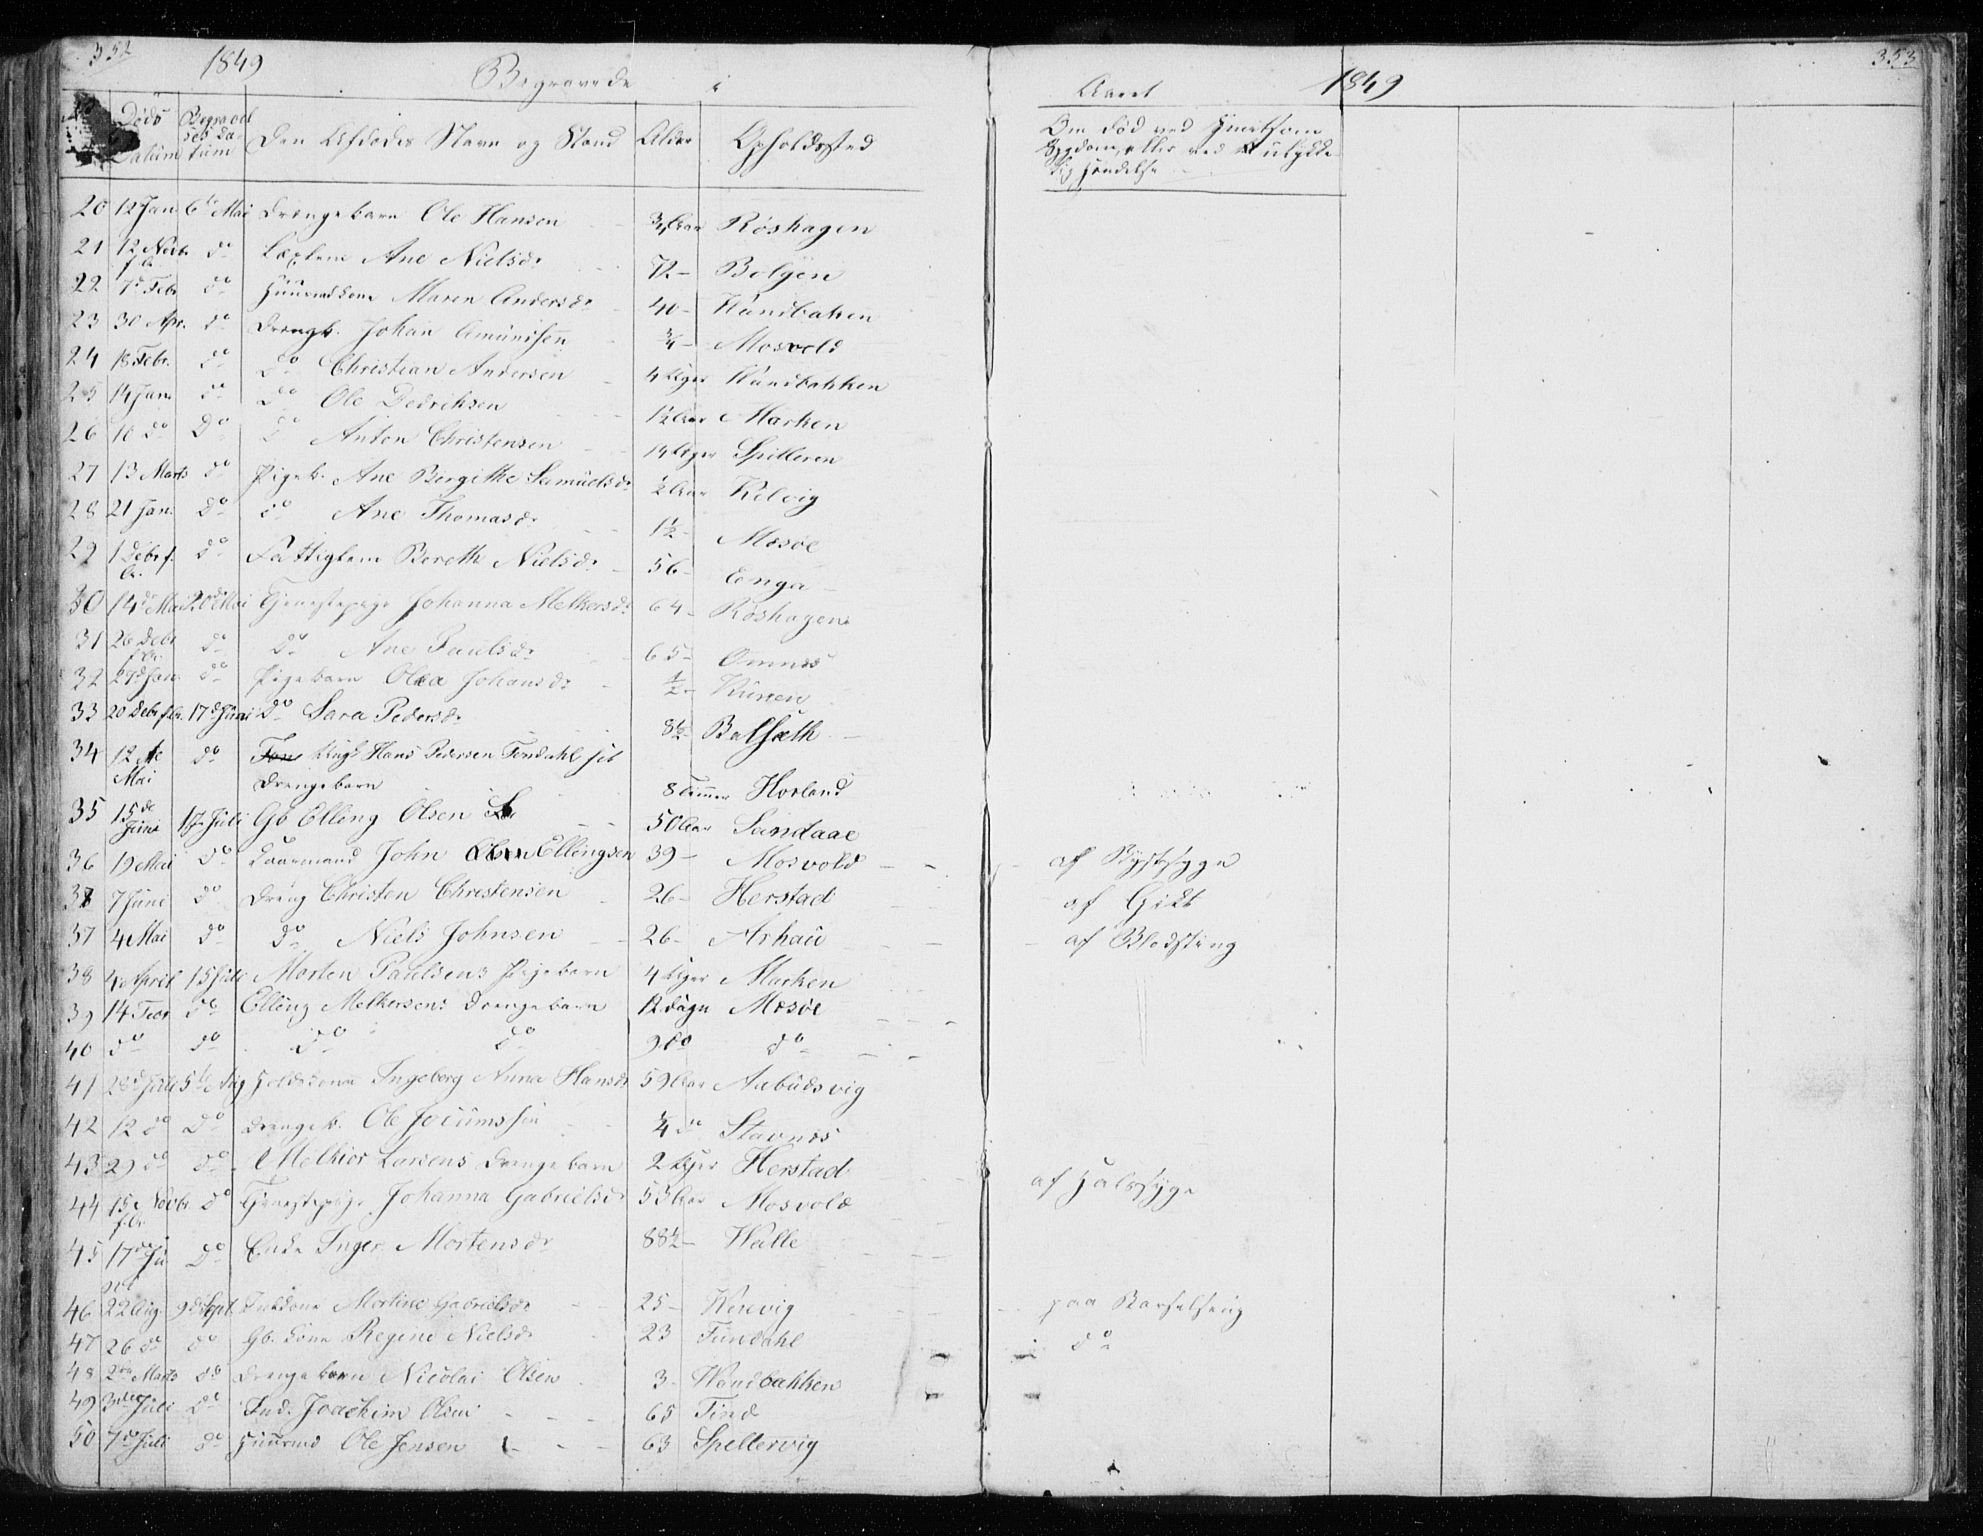 352 1849 Begravede i Aaret 1849 353
Døds Datum Begravel ses da- tum Den Afdødes Navn og Stand Alder Opholdssted
Om død ved Smitsom
Sygdom, eller ved ulykke-
lig Hændelse
20 12 Jan 6te Mai Drengebarn Ole Hansen Aar Røshagen
21 12 Novbr. f. A. do Ane Nielsdr 72 - Bolgen
22 7d Febr do Huusmdkone Maren Andersdr 40 - Hundbakken
23 30 Apr. do Drengb. Johan Amundsen 3/4 - Mosvold
24 18 Febr. do do Christian Andersen 4 Uger Hundbakken
25 14 Jan. do do Ole Dedriksen 1½ Aar Marken
26 16 do Do do Anton Christensen 14 Uger Spilleren
27 13 Marts do Pigeb. Ane Birgithe Samuelsdr ½ Aar Kilvig
28 21 Jan. Do do Ane Thomasdr 1½ - Mosøe
29 1 Debr f. A. do Fattiglem Bereth Nielsdr 56 - Enga
30 14de Mai 20de Mai Tjenestepige Johanna Melkersdr 64 - Røshagen
31 26 Debr f. A. do do Ane Paulsdr 65 - Omnes
32 29d Jan. do Pigebarn Olea Johansdr ½ - Kunen
33 20 Debr f. A. 17d Juni Do Sara Pedersdr 8½ - Balsæth
34 12te Mai do Ungk Hans Pedersen Fondahl
Drengebarn 8 Timer Horland
35 15de Juni 17 Juli Gb Elling Olsen 50 Aar Sandaae
36 19 Mai do Kaarmand John Ellingsen 39 - Mosvold - af Brystsyge
7 Juni do Dreng Christen Christensen 26 - Herstad af Gikt
37 4 Mai do do Niels Johnsen 26 - Arhau - af Blodsting
38 4 April 15 Juli Morten Paulsens Pigebarn 4 Uger Marken
39 14 Febr do Elling Melkersens Drengebarn 12 dage Mosøe
40 do do do do 9 do do
41 28d Juli 5te Aug Ingeborg Anna Hansdr 59 Aar Aabudsvig
42 12 do Do Drengeb. Ole Jocumssen ¼ do Stavnes
43 29 do do Melkior Larsens Drengebarn 2 Uger Herstad
44 15 Novbr. f. A. do Tjenestepige Johanna Gabrielsdr 53 Aar Mosvold af Halssyge
45 17de Ju Do Enke Inger Mortensdr 88½ - Walle
46 22 Aug. 9d Sept. Indkone Martine Gabrielsdr 25 - Kunevig paa Barselseng
47 26 do do Gb. Kone Regine Nielsdr 23 Fundahl do
48 2den Marts do Drengebarn Nicolai Olsen 3 - Hundbakken
49 3die Juli do Ind. Joachim Olsen 65 Tind
50 7de Juli do Huusmd Ole Jensen 63 Spellervig